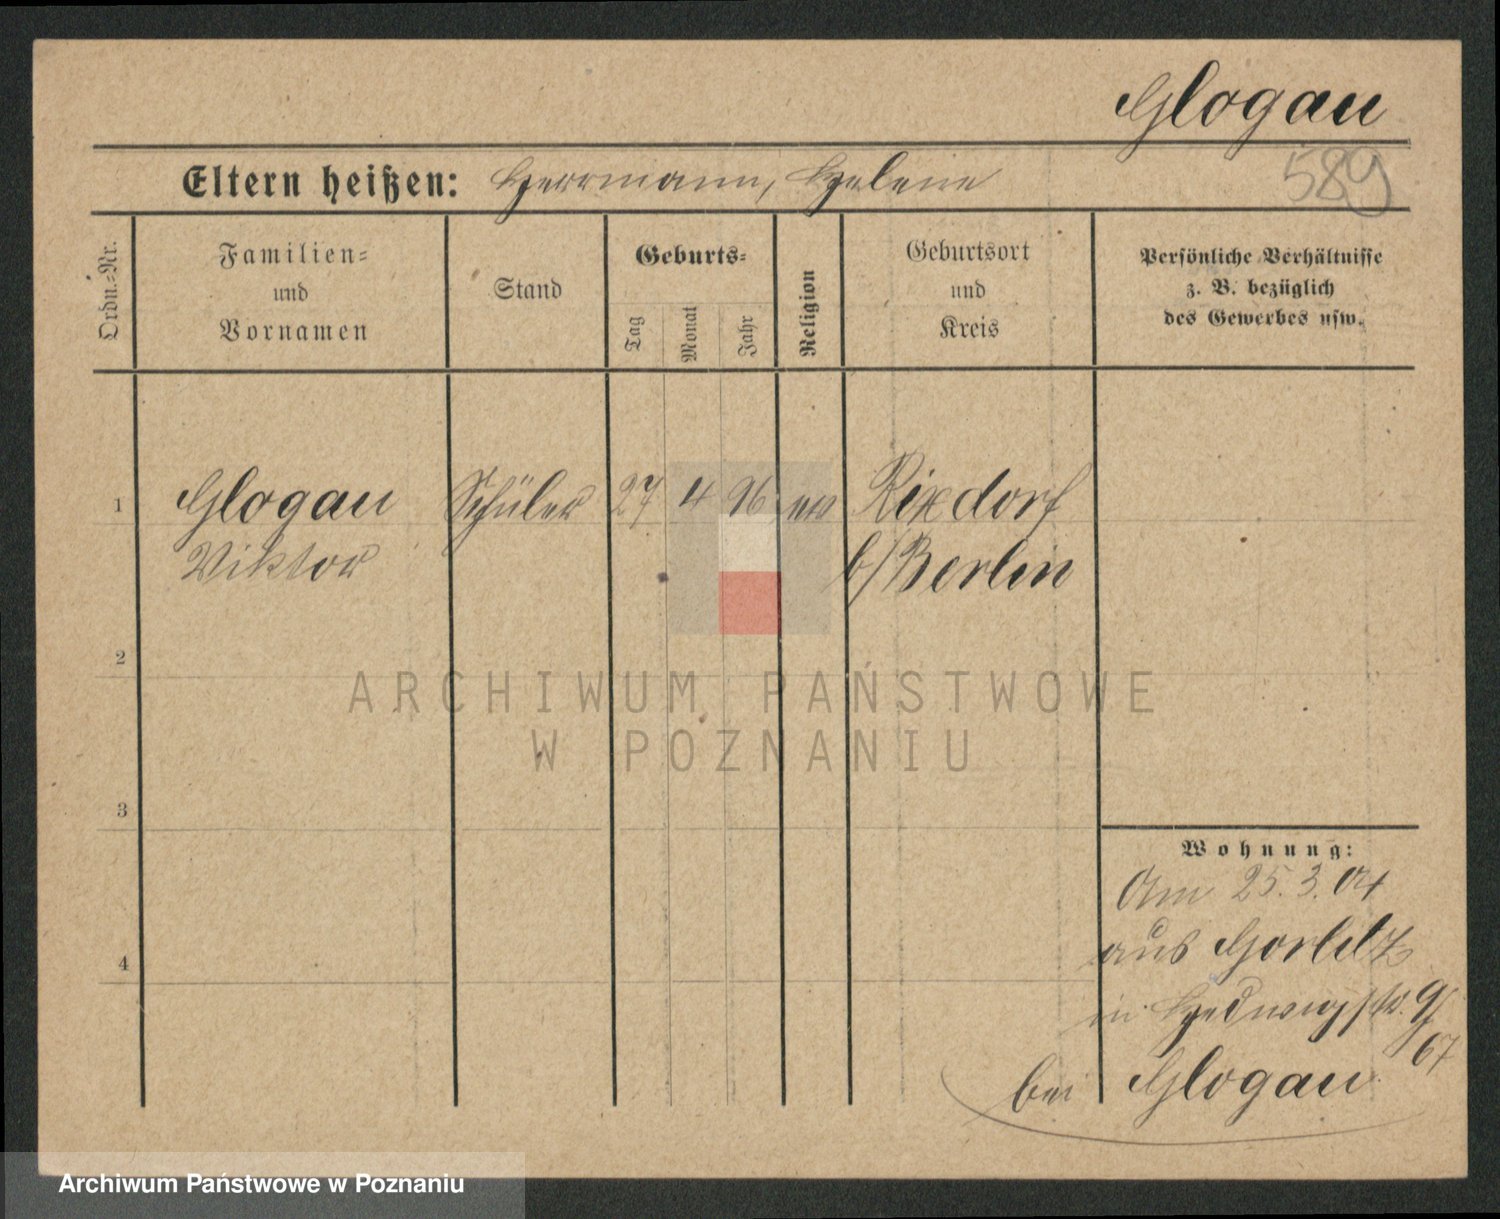 Glogau
589
Eltern heißen: Herrmann, Helene
Ordn.-Nr.
Familien-
und
Vornamen
Stand
Geburts-
Tag
Monat
Jahr
Religion
Geburtsort
und
Kreis
Persönliche Verhältnisse
z. B. bezüglich
des Gewerbes usw.
1 Glogau Schüler 27 4 96 ev Rixdorf
Viktor b/Berlin
2
3
4
Wohnung:
Am 25.3.04
aus Görlitz
in Hedwigstr. 9/
67
bei Glogau
ARCHIWUM PAŃSTWOWE
W POZNANIU
Archiwum Państwowe w Poznaniu